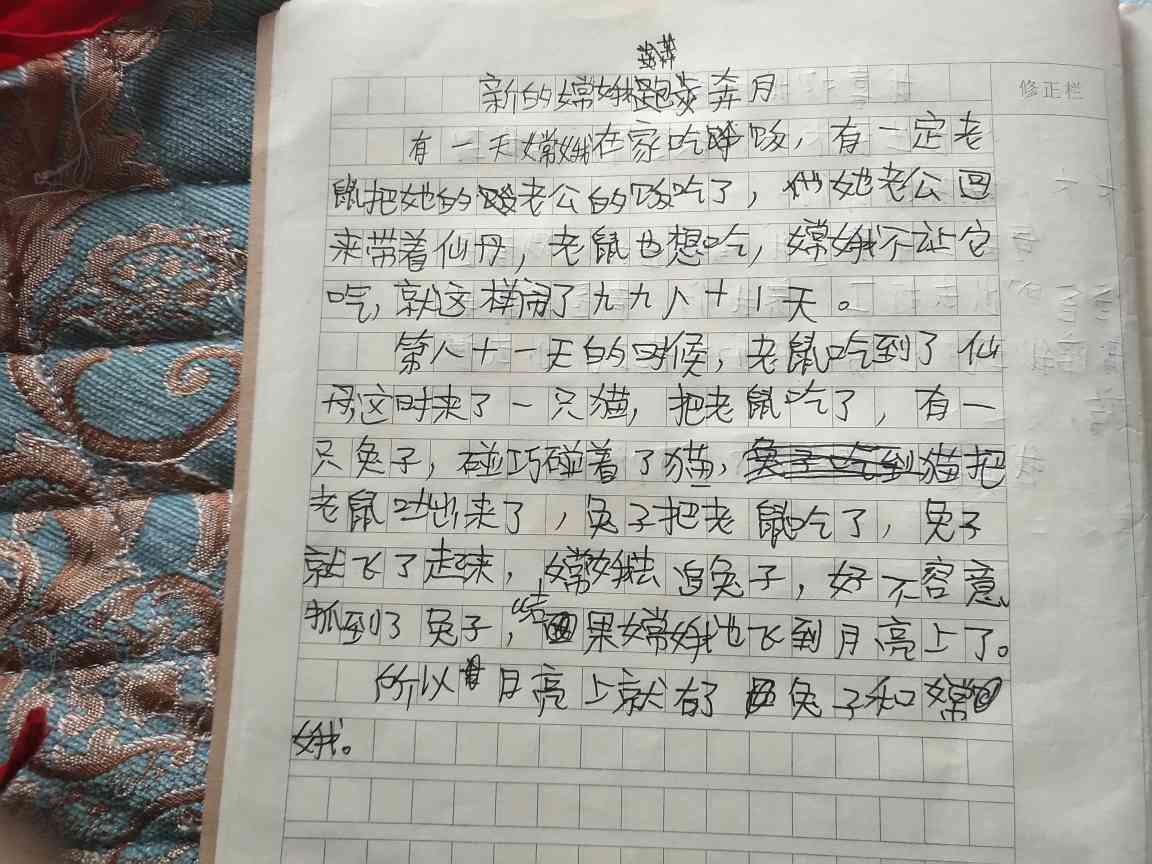 新的嫦娥奔月
修正栏
有一天嫦娥在家吃饭，有一定老
鼠把她的老公的饭吃了，她老公回
来带着仙丹，老鼠也想吃，嫦娥不让它
吃，就这样闹了九九八十一天。
第八十一天的时候，老鼠吃到了仙
丹，这时来了一只猫，把老鼠吃了，有一
只兔子，碰巧碰着了猫，猫把
老鼠吐出来了，兔子把老鼠吃了，兔子
就飞了起来，嫦娥去追兔子，好不容意
抓到了兔子，结果嫦娥也飞到月亮上了。
所以月亮上就有了兔子和嫦
娥。